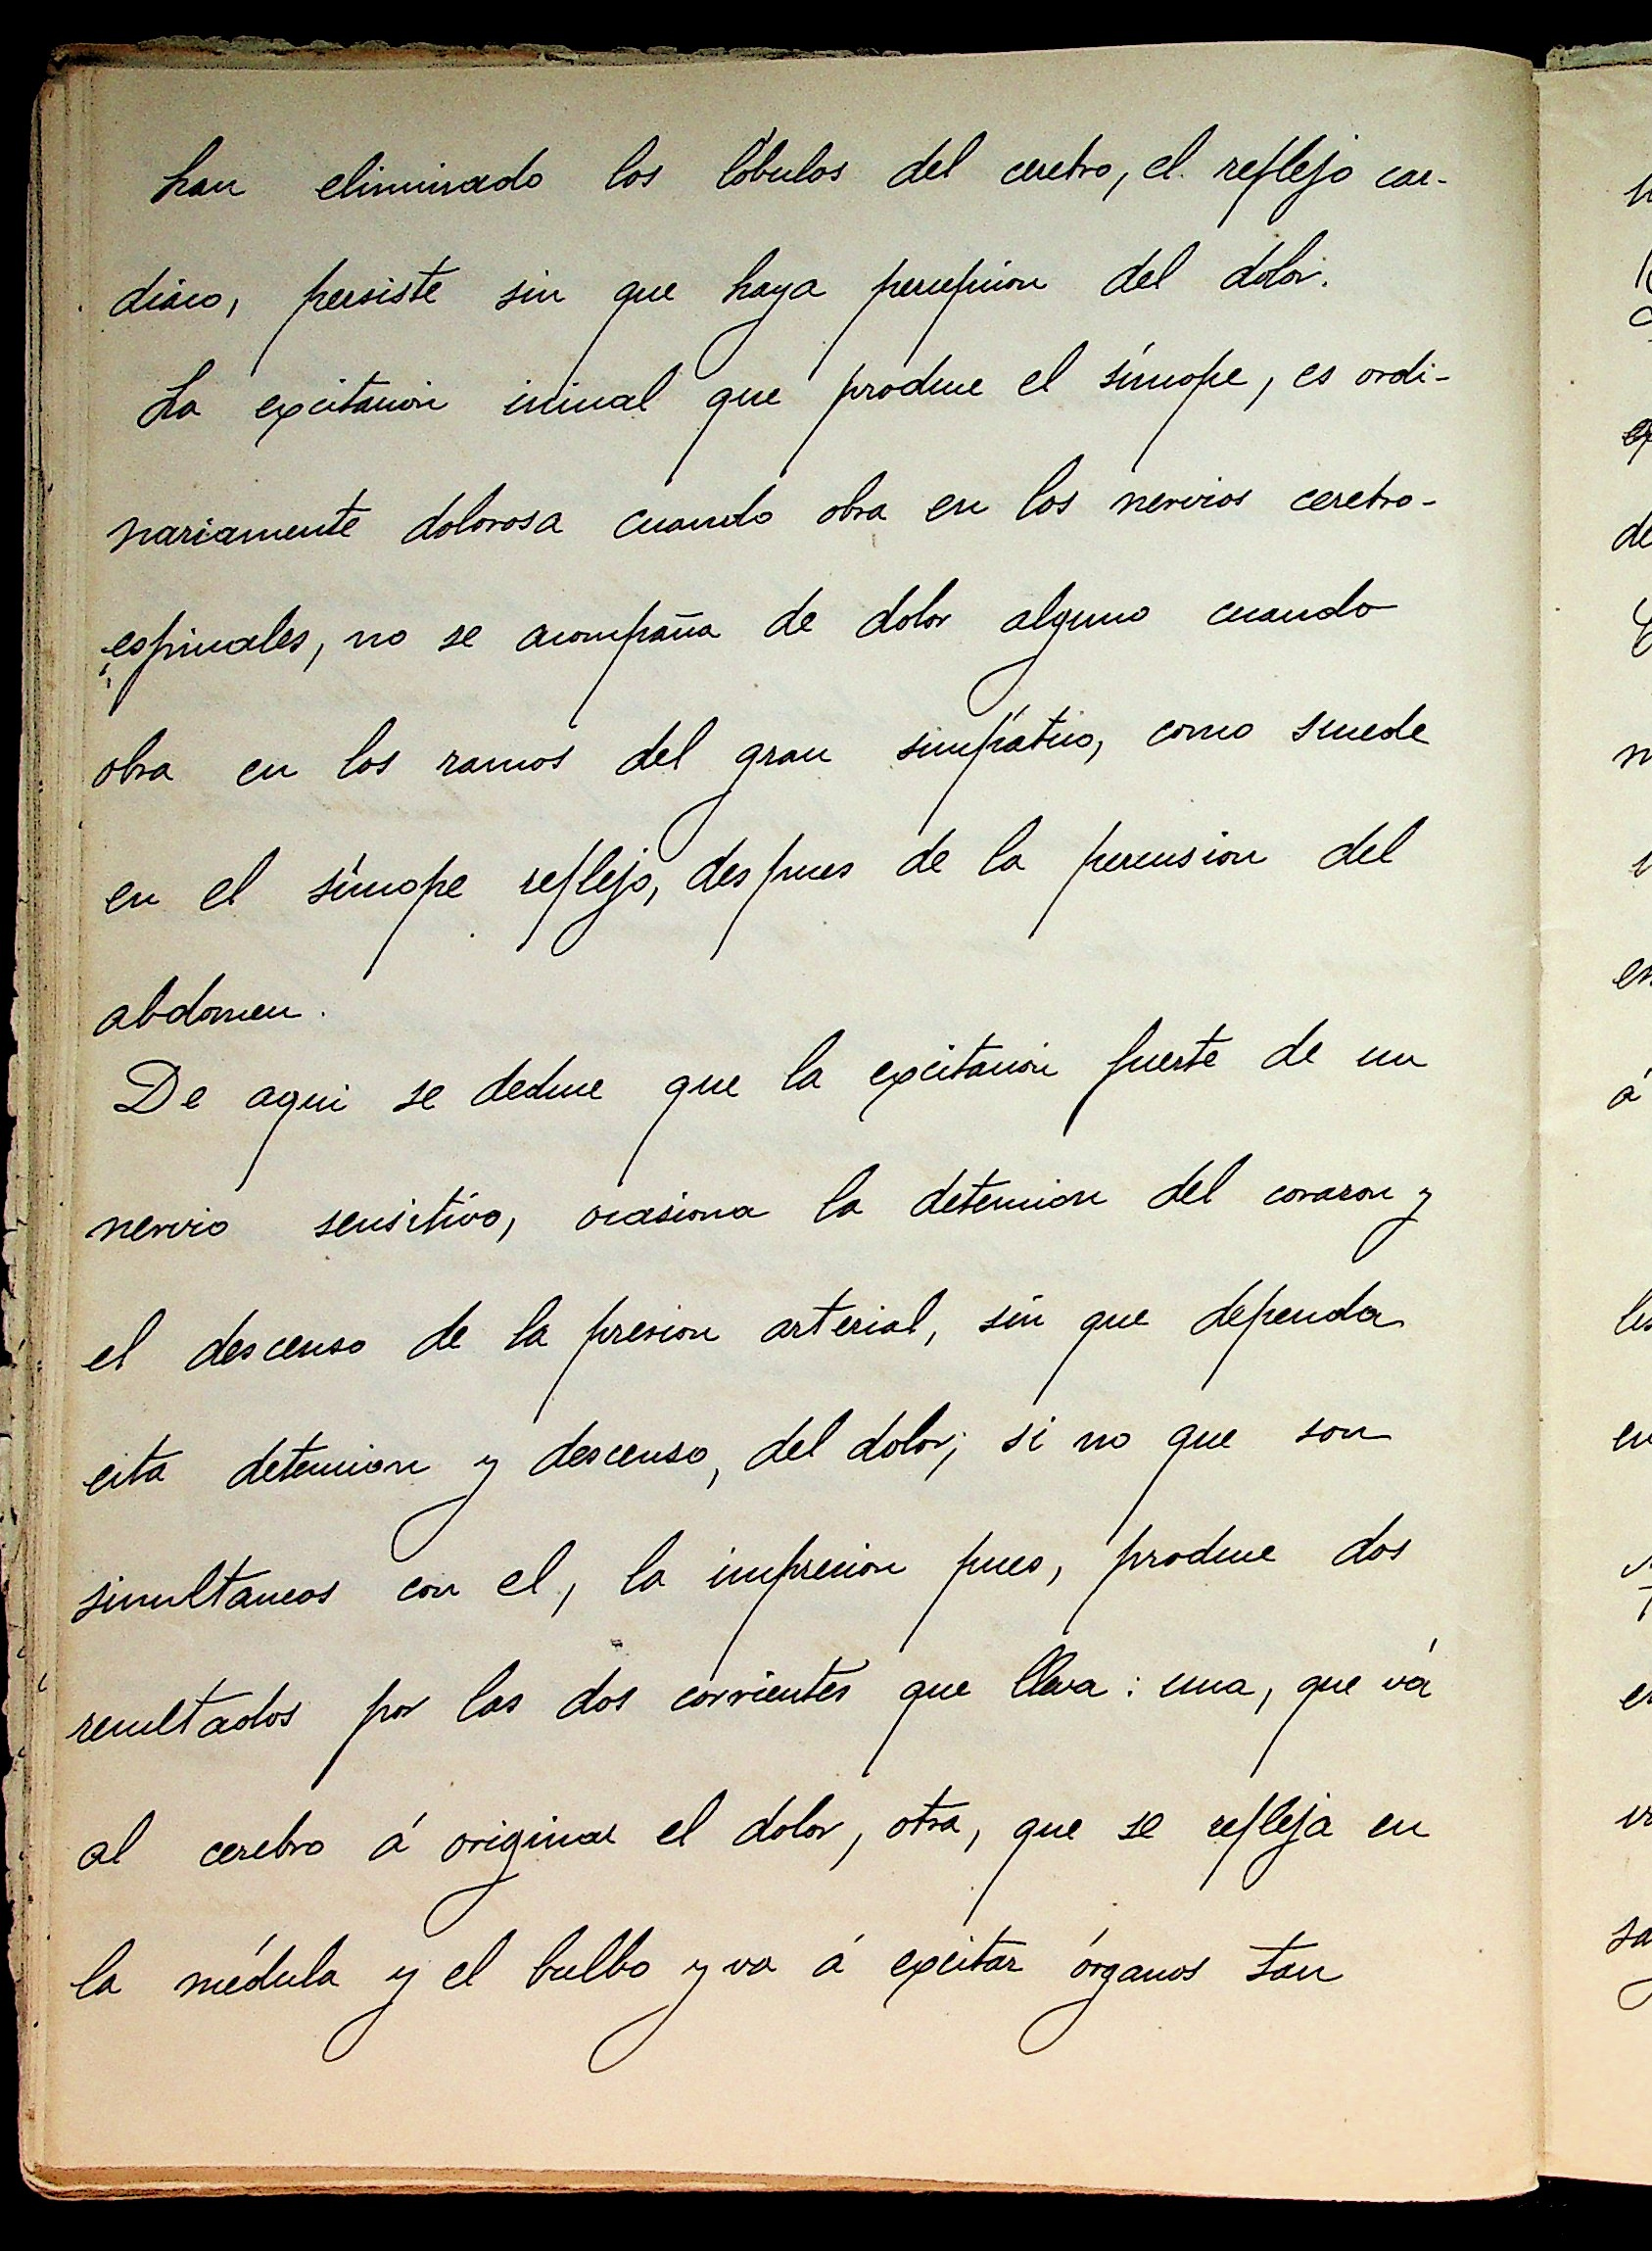 han eliminado los lóbulos del cerebro, el reflejo car-
diaco, persiste sin que haya percepcion del dolor.
La excitacion inicial que produce el síncope, es ordi-
nariamente dolorosa cuando obra en los nervios cerebro-
espinales, no se acompaña de dolor alguno cuando
obra en los ramos del gran simpático, como sucede
en el síncope reflejo, despues de la percusion del
abdomen.
De aqui se deduce que la excitación fuerte de un
nervio sensitivo, ocasiona la detencion del corazon y
el descenso de la presion arterial, sin que dependa
esta detencion y descenso, del dolor; si no que son
simultaneos con el, la impresion pues, produce dos
resultados por las dos corrientes que lleva: una, que vá
al cerebro á originar el dolor, otra, que se refleja en
la médula y el bulbo y va á excitar órganos tan